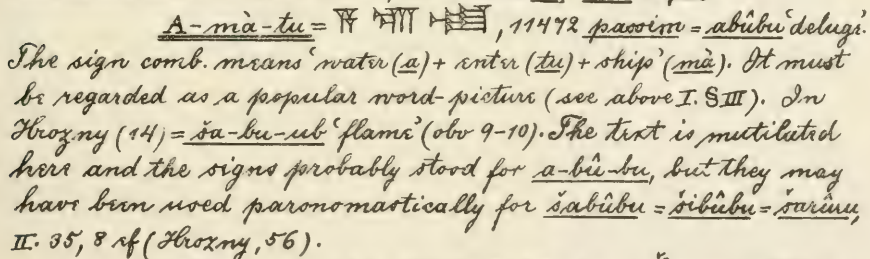 A-mà-tu = 𒀀 𒈣 𒌅, 11472 passim = abûbu 'deluge'.
The sign comb. means 'water (a) + enter (tu) + ship' (mà). It must
be regarded as a popular word-picture (see above I. § III). In
Hrozny (14) = ša-bu-ub 'flame' (obv 9-10). The text is mutilated
here and the signs probably stood for a-bû-bu, but they may
have been used paronomastically for šabûbu = šibûbu = šarûru,
II. 35, 8 ef (Hrozny, 56).